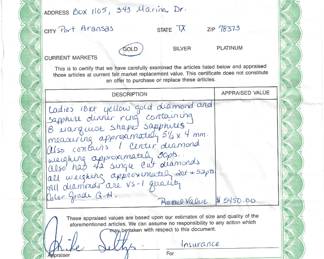 ADDRESS Box 1105, 343 Marina Dr.
CITY Port Aransas STATE TX ZIP 78373
GOLD SILVER PLATINUM
CURRENT MARKETS
This is to certify that we have carefully examined the articles listed below and appraised
those articles at current fair market replacement value. This certificate does not constitute
an offer to purchase or replace these articles.
DESCRIPTION APPRAISED VALUE
Ladies 18kt yellow gold diamond and
sapphire dinner ring containing
8 marquise shape sapphires
measuring approximately 5½ x 4 mm.
Also contains 1 Center diamond
weighing approximately 20pts
Also has 42 single cut diamonds
all weighing approximately
All diamonds are VS-1 quality
Color Grade G-H Value $ 5450.00
These appraised values are based upon our estimates of size and quality of the
aforementioned articles. We can assume no responsibility to any action which
may be taken with respect to this document.
Insurance
Appraiser For